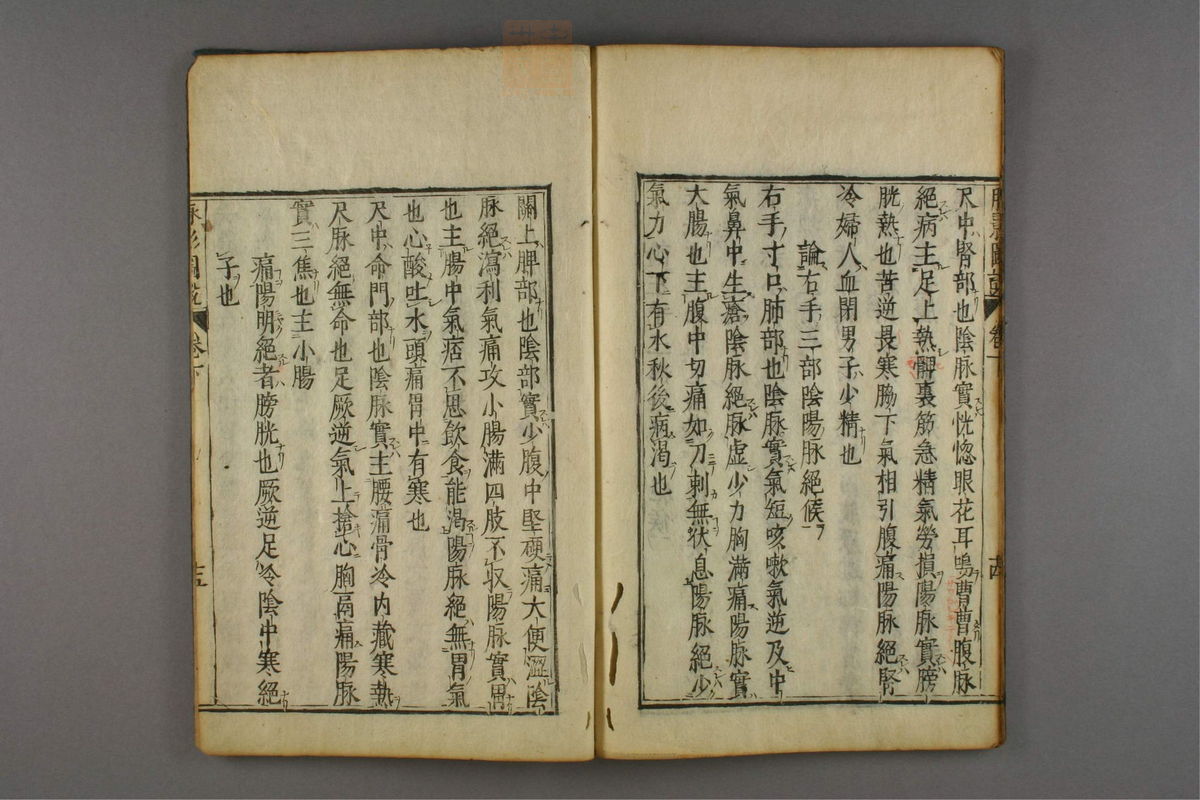 尺中腎部也陰脉實恍惚眼花耳鳴嘈嘈腹脉
絕病主足上熱髀裏筋急精氣勞損陽脉實膀
胱熱也苦逆畏寒脇下氣相引腹痛陽脉絕腎
冷婦人血閉男子少精也
論右手三部陰陽脉絕候
右手寸口肺部也陰脉實氣短咳嗽氣逆及中
氣鼻中生瘡陰脉絕脉虛少力胸滿痛陽脉實
大腸也主腹中切痛如刀刺無状息陽脉絕少
氣力心下有水秋後病渴也
十四
關上脾部也陰部實少腹中堅硬痛大便澀陰
脉絕瀉利氣痛攻小腸滿四肢不収陽脉實胃
也主腸中氣痞不思飲食能渴陽脉絕無胃氣
也心酸吐水頭痛胃中有寒也
尺中命門部也陰脉實主腰痛骨冷内藏寒熱
尺脉絕無命也足厥逆氣上搶心胸鬲痛陽脉
實三焦也主小腸
痛陽明絕者膀胱也厥逆足冷陰中寒絕
子也
卷下
十五